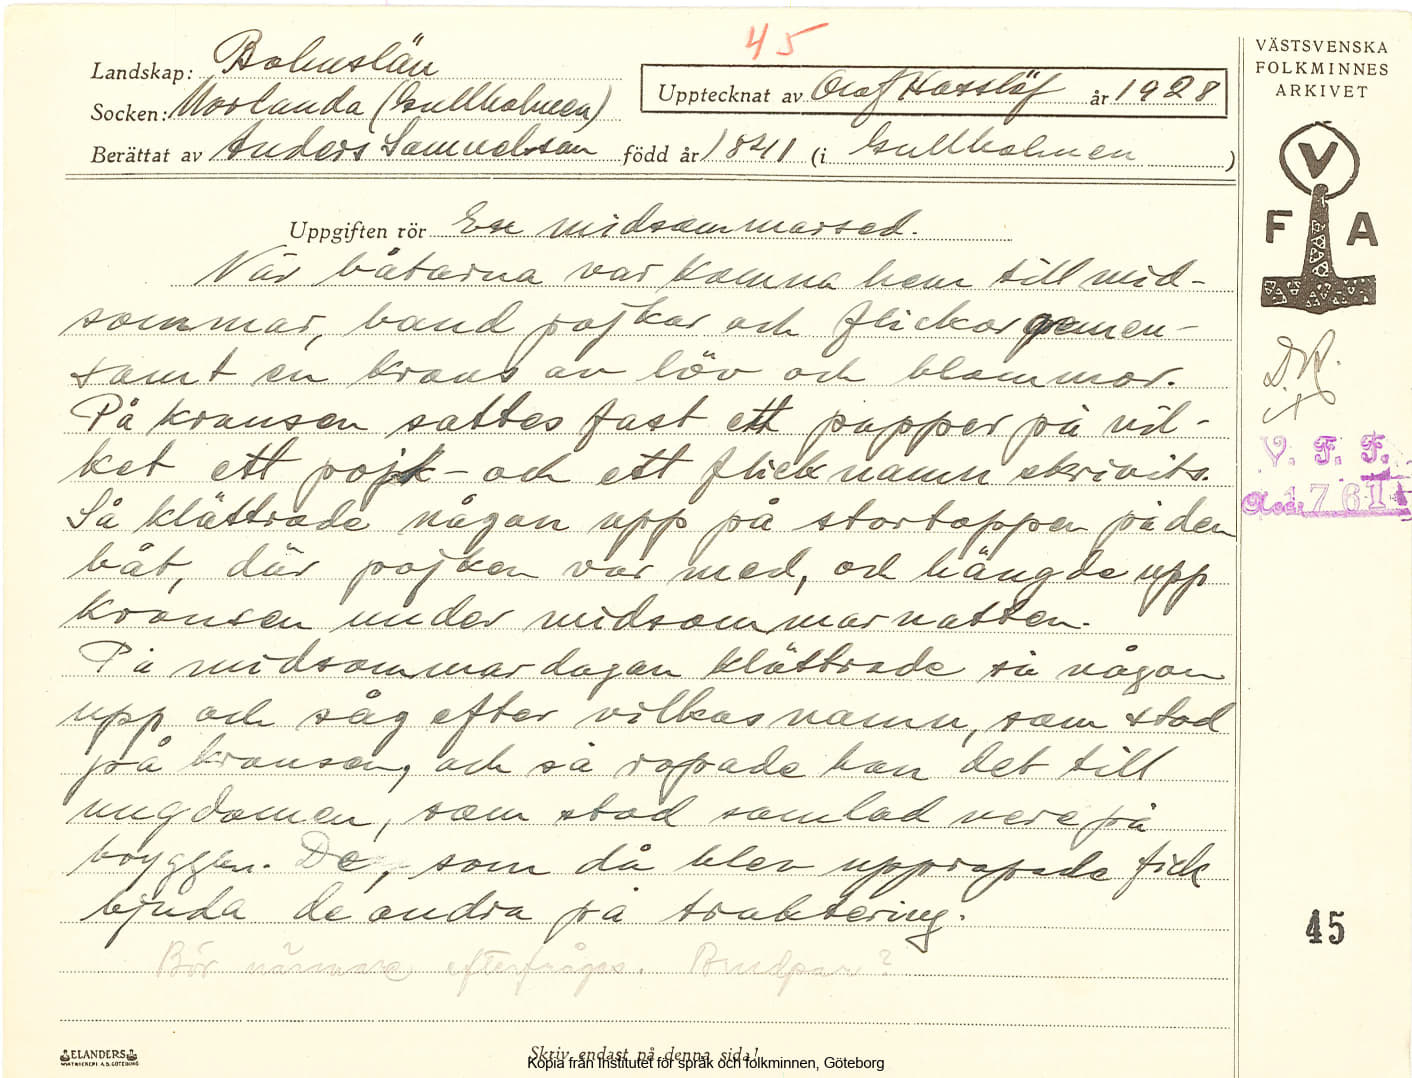 45
Landskap: Bohuslän
Socken: Morlanda (Gullholmen)
Upptecknat av Olof Hasslöf år 1928
Berättat av Anders Samuelsson född år 1841 (i Gullholmen )
Uppgiften rör En midsommarsed.
När båtarna var komna hem till mid-
sommar, band pojkar och flickor gemen-
samt en krans av löv och blommor.
På kransen sattes fast ett papper på vil-
ket ett pojk- och ett flicknamn skrivits.
Så klättrade någon upp på stortoppen på den
båt, där pojken var med, och hängde upp
kransen under midsommarnatten.
På midsommardagen klättrade så någon
upp och såg efter vilkas namn, som stod
på kransen, och så ropade han det till
ungdomen, som stod samlad nere på
bryggen. De, som då blev uppropade fick
bjuda de andra på traktering.
Bör närmare efterfrågas. Brudpar?
ELANDERS
Skriv endast på denna sida!
Kopia från Institutet för språk och folkminnen, Göteborg
VÄSTSVENSKA
FOLKMINNES
ARKIVET
V
F A
V. F. F.
Acc. 1761
45